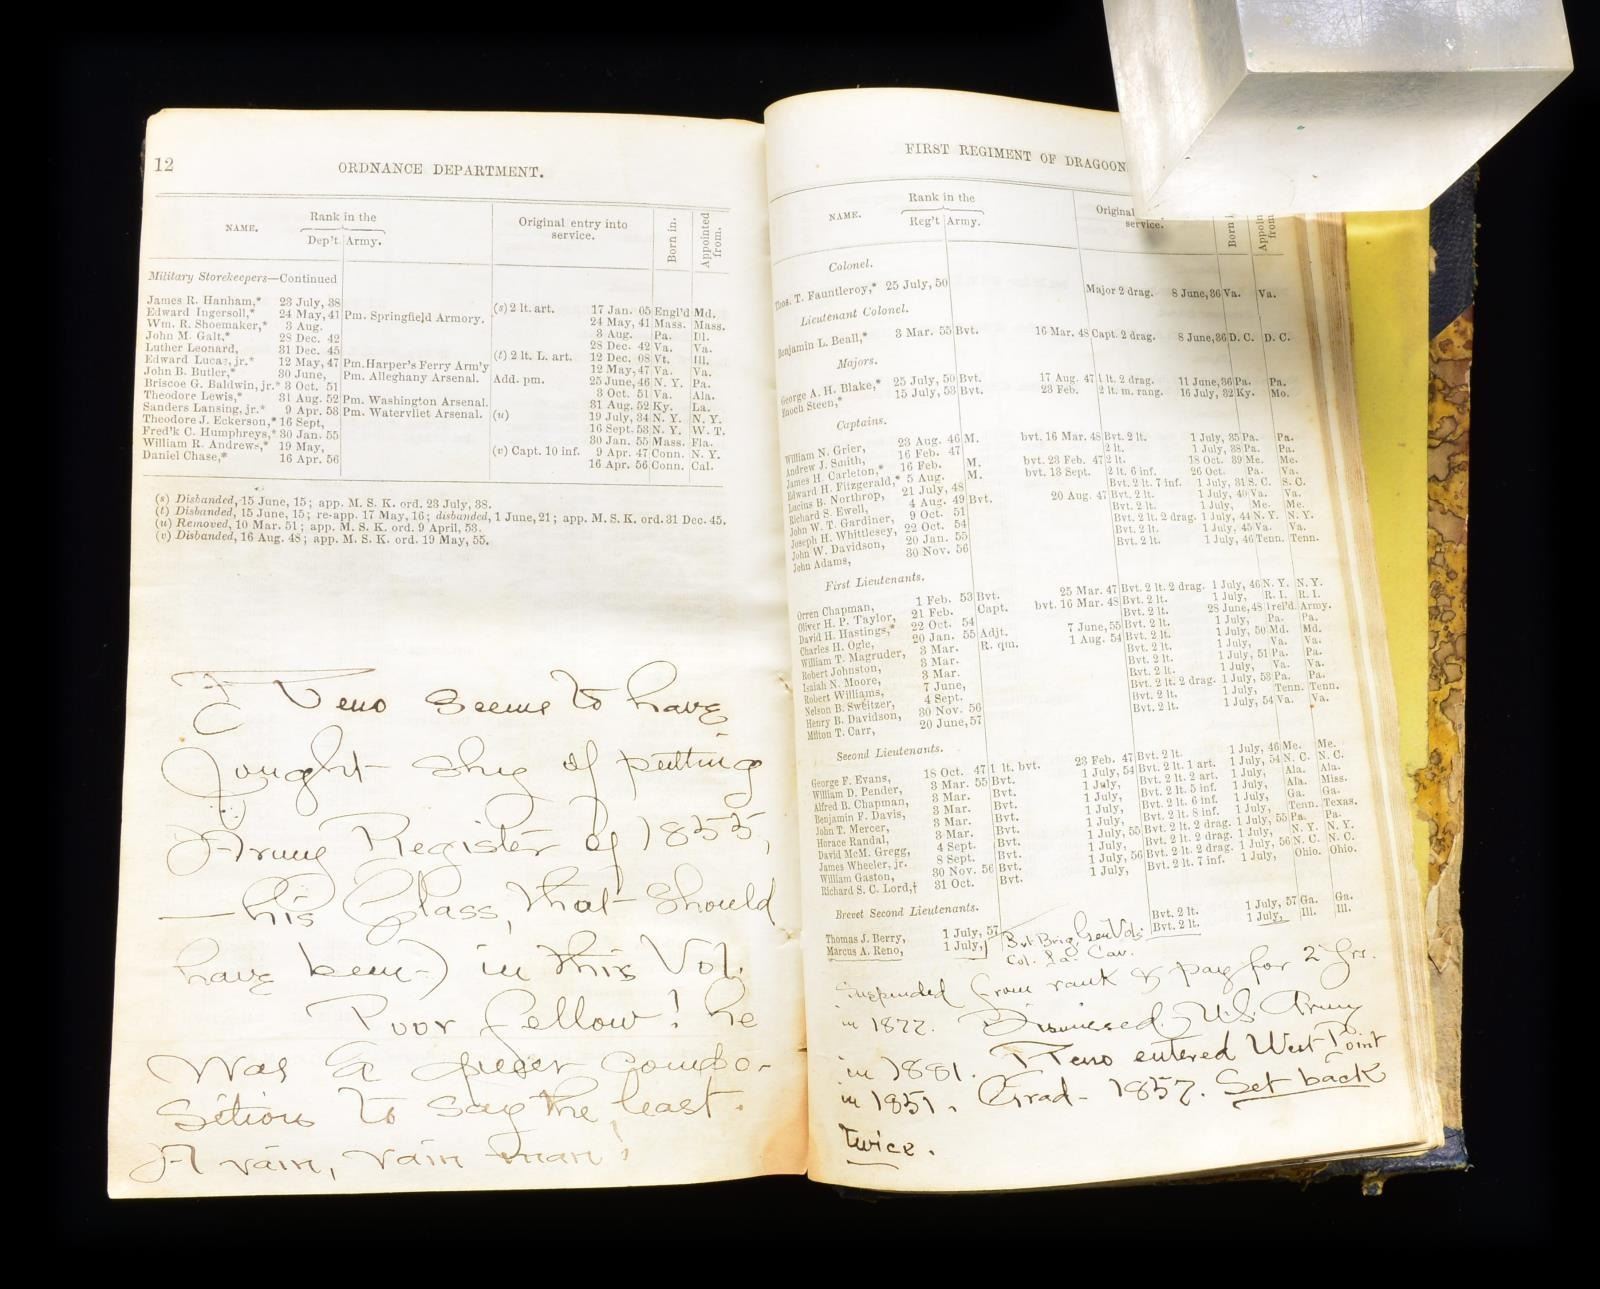 12
ORDNANCE DEPARTMENT.
NAME.
Rank in the
Dep't Army.
Original entry into service.
Born in.
Appointed from.
Military Storekeepers—Continued
James R. Hanham,* 23 July, 38 (s) 2 lt. art. 17 Jan. 05 Engl'd Md.
Edward Ingersoll,* 24 May, 41 Pm. Springfield Armory. 24 May, 41 Mass. Mass.
Wm. R. Shoemaker,* 3 Aug. 3 Aug. Pa. Ill.
John M. Galt,* 28 Dec. 42 28 Dec. 42 Va. Va.
Luther Leonard, 31 Dec. 45 (t) 2 lt. L. art. 12 Dec. 08 Vt. Ill.
Edward Lucas, jr.* 12 May, 47 Pm. Harper's Ferry Arm'y 12 May, 47 Va. Va.
John B. Butler,* 30 June, Pm. Alleghany Arsenal. Add. pm. 25 June, 46 N. Y. Pa.
Briscoe G. Baldwin, jr.* 3 Oct. 51 3 Oct. 51 Va. Ala.
Theodore Lewis,* 31 Aug. 52 Pm. Washington Arsenal. 31 Aug. 52 Ky. La.
Sanders Lansing, jr.* 9 Apr. 53 Pm. Watervliet Arsenal. (u) 19 July, 34 N. Y. N. Y.
Theodore J. Eckerson,* 16 Sept, 16 Sept. 53 N. Y. W. T.
Fred'k C. Humphreys,* 30 Jan. 55 30 Jan. 55 Mass. Fla.
William R. Andrews,* 19 May, (v) Capt. 10 inf. 9 Apr. 47 Conn. N. Y.
Daniel Chase,* 16 Apr. 56 16 Apr. 56 Conn. Cal.
(s) Disbanded, 15 June, 15; app. M. S. K. ord. 23 July, 38.
(t) Disbanded, 15 June, 15; re-app. 17 May, 16; disbanded, 1 June, 21; app. M. S. K. ord. 31 Dec. 45.
(u) Removed, 10 Mar. 51; app. M. S. K. ord. 9 April, 53.
(v) Disbanded, 16 Aug. 48; app. M. S. K. ord. 19 May, 55.
Reno seems to have
fought shy of putting
Army Register of 1855,
— his Class, that should
have been-) in this Vol.
Poor fellow! he
was a queer compo-
sition to say the least.
A vain, vain man!
FIRST REGIMENT OF DRAGOON
NAME.
Rank in the
Reg't Army.
Original
service.
Born i
Appoin
from.
Colonel.
Thos. T. Fauntleroy,* 25 July, 50 Major 2 drag. 8 June, 36 Va. Va.
Lieutenant Colonel.
Benjamin L. Beall,* 3 Mar. 55 Bvt. 16 Mar. 48 Capt. 2 drag. 8 June, 36 D. C. D. C.
Majors.
George A. H. Blake,* 25 July, 50 Bvt. 17 Aug. 47 1 lt. 2 drag. 11 June, 36 Pa. Pa.
Enoch Steen,* 15 July, 53 Bvt. 23 Feb. 2 lt. m. rang. 16 July, 32 Ky. Mo.
Captains.
William N. Grier, 23 Aug. 46 M. bvt. 16 Mar. 48 Bvt. 2 lt. 1 July, 35 Pa. Pa.
Andrew J. Smith, 16 Feb. 47 2 lt. 1 July, 38 Pa. Pa.
James H. Carleton,* 16 Feb. M. bvt. 23 Feb. 47 2 lt. 18 Oct. 39 Me. Me.
Edward H. Fitzgerald,* 5 Aug. M. bvt. 13 Sept. 2 lt. 6 inf. 26 Oct. Pa. Va.
Lucius B. Northrop, 21 July, 48 Bvt. 2 lt. 7 inf. 1 July, 31 S. C. S. C.
Richard S. Ewell, 4 Aug. 49 Bvt. 20 Aug. 47 Bvt. 2 lt. 1 July, 40 Va. Va.
John W. T. Gardiner, 9 Oct. 51 Bvt. 2 lt. 1 July, Me. Me.
Joseph H. Whittlesey, 22 Oct. 54 Bvt. 2 lt. 2 drag. 1 July, 44 N. Y. N. Y.
John W. Davidson, 20 Jan. 55 Bvt. 2 lt. 1 July, 45 Va. Va.
John Adams, 30 Nov. 56 Bvt. 2 lt. 1 July, 46 Tenn. Tenn.
First Lieutenants.
Orren Chapman, 1 Feb. 53 Bvt. 25 Mar. 47 Bvt. 2 lt. 2 drag. 1 July, 46 N. Y. N. Y.
Oliver H. P. Taylor, 21 Feb. Capt. bvt. 16 Mar. 48 Bvt. 2 lt. 1 July, R. I. R. I.
David H. Hastings,* 22 Oct. 54 Bvt. 2 lt. 28 June, 48 Irel'd. Army.
Charles H. Ogle, 20 Jan. 55 Adjt. 7 June, 55 Bvt. 2 lt. 1 July, Pa. Pa.
William T. Magruder, 3 Mar. R. qm. 1 Aug. 54 Bvt. 2 lt. 1 July, 50 Md. Md.
Robert Johnston, 3 Mar. Bvt. 2 lt. 1 July, Va. Va.
Isaiah N. Moore, 3 Mar. Bvt. 2 lt. 1 July, 51 Pa. Pa.
Robert Williams, 7 June, Bvt. 2 lt. 1 July, Va. Va.
Nelson B. Sweitzer, 4 Sept. Bvt. 2 lt. 2 drag. 1 July, 53 Pa. Pa.
Henry B. Davidson, 30 Nov. 56 Bvt. 2 lt. 1 July, Tenn. Tenn.
Milton T. Carr, 20 June, 57 Bvt. 2 lt. 1 July, 54 Va. Va.
Second Lieutenants.
George F. Evans, 18 Oct. 47 1 lt. bvt. 23 Feb. 47 Bvt. 2 lt. 1 July, 46 Me. Me.
William D. Pender, 3 Mar. 55 Bvt. 1 July, 54 Bvt. 2 lt. 1 art. 1 July, 54 N. C. N. C.
Alfred B. Chapman, 3 Mar. Bvt. 1 July, Bvt. 2 lt. 2 art. 1 July, Ala. Ala.
Benjamin F. Davis, 3 Mar. Bvt. 1 July, Bvt. 2 lt. 5 inf. 1 July, Ala. Miss.
John T. Mercer, 3 Mar. Bvt. 1 July, Bvt. 2 lt. 6 inf. 1 July, Ga. Ga.
Horace Randal, 3 Mar. Bvt. 1 July, Bvt. 2 lt. 8 inf. 1 July, Tenn. Texas.
David McM. Gregg, 4 Sept. Bvt. 1 July, 55 Bvt. 2 lt. 2 drag. 1 July, 55 Pa. Pa.
James Wheeler, jr. 8 Sept. Bvt. 1 July, Bvt. 2 lt. 2 drag. 1 July, N. Y. N. Y.
William Gaston, 30 Nov. 56 Bvt. 1 July, 56 Bvt. 2 lt. 2 drag. 1 July, 56 N. C. N. C.
Richard S. C. Lord,† 31 Oct. Bvt. 1 July, Bvt. 2 lt. 7 inf. 1 July, Ohio. Ohio.
Brevet Second Lieutenants.
Thomas J. Berry, 1 July, 57 Bvt. 2 lt. 1 July, 57 Ga. Ga.
Marcus A. Reno, 1 July, Bvt. 2 lt. 1 July, Ill. Ill.
Bvt. Brig Gen Vols.
Col. Pa. Cav.
Suspended from rank & pay for 2 Yrs.
in 1877. Dismissed U.S. Army
in 1881. Reno entered West Point
in 1851. Grad- 1857. Set back
twice.